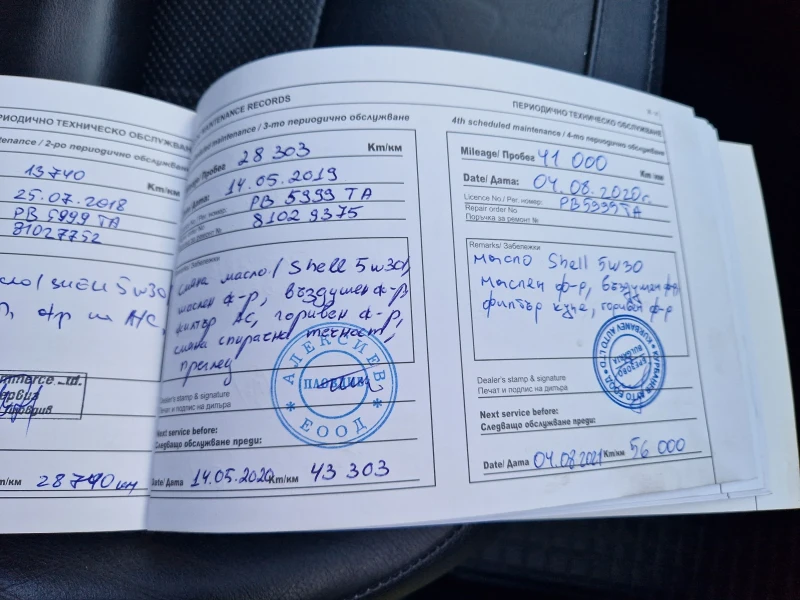 ПЕРИОДИЧНО ТЕХНИЧЕСКО ОБСЛУЖВАН
maintenance / 2-ро периодично обслужван
13740
Km/км
25.07.2018
PB 5999 TA
81027752
SHELL 5w30
А/С,
сервиз
Пловдив
28740 км
MAINTENANCE RECORDS
scheduled maintenance / 3-то периодично обслужване
Mileage/ Пробег 28 303 Km/км
Дата: 14.05.2019
PB 5999 TA
8102 9375
Забележки
смяна масло (Shell 5w30)
маслен ф-р, въздушен ф-р
филтър АС, горивен ф-р,
смяна спирачна течност,
преглед
АЛЕКСИЕВ
ПЛОВДИВ
* ЕООД *
Dealer's stamp & signature
Печат и подпис на дилъра
Next service before:
Следващо обслужване преди:
Date/ Дата 14.05.2020 Km/км 43 303
ПЕРИОДИЧНО ТЕХНИЧЕСКО ОБСЛУЖВАНЕ
4th scheduled maintenance / 4-то периодично обслужване
Mileage/ Пробег 41 000 Km/км
Date/ Дата: 04.08.2020г.
Licence No./ Рег. номер: PB5999TA
Repair order No.
Поръчка за ремонт №
Remarks/ Забележки
масло Shell 5w30
маслен ф-р, въздушен ф-р
филтър купе, горивен ф-р
KURBANEV AUTO LTD
КУРБАНЕВ АУТО ЕООД
BULGARIA
Dealer's stamp & signature
Печат и подпис на дилъра
Next service before:
Следващо обслужване преди:
Date/ Дата 04.08.2021 Km/км 56 000